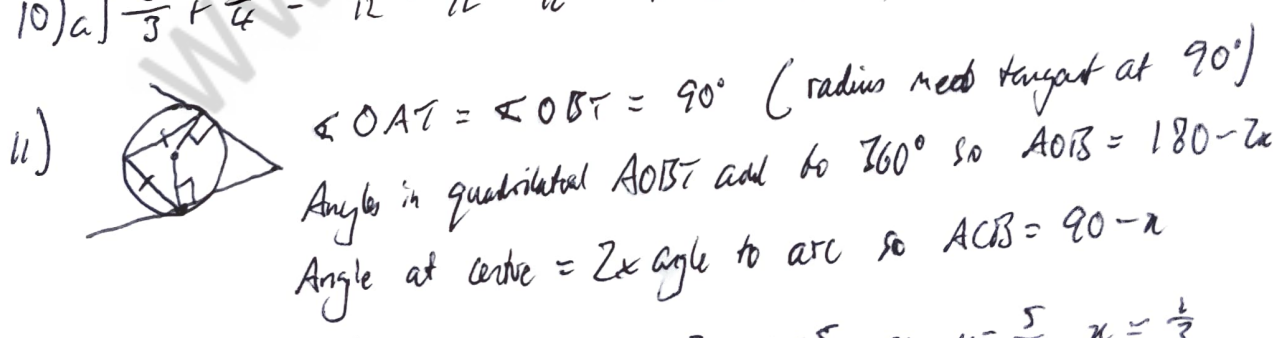 10) a) 3 + 4 - 12
11) ∡OAT = ∡OBT = 90° (radius meets tangent at 90°)
Angles in quadrilateral AOBT add to 360° so AOB = 180-2x
Angle at centre = 2x angle to arc so ACB = 90-x
5 x = 1/3